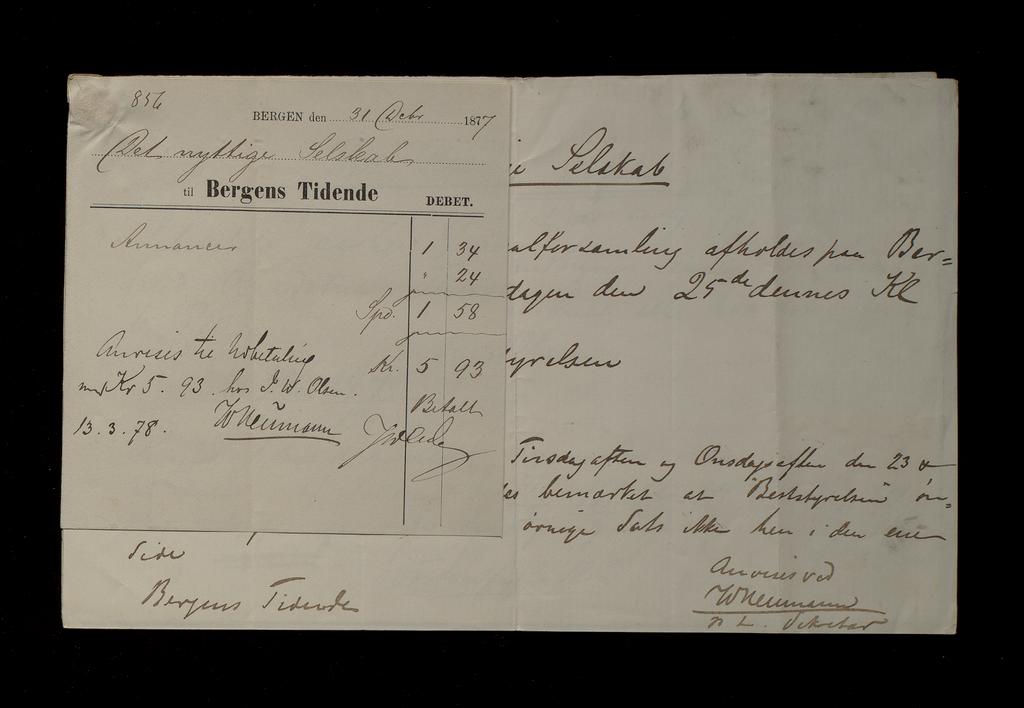 856
BERGEN den 31 Debr 1877
Det nyttige Selskab
til Bergens Tidende
DEBET.
Annoncer 1 34
" 24
Spd. 1 58
Kr. 5 93
Anvises til Udbetaling
med Kr 5. 93 hos J. W. Olsen.
13. 3. 78. WNeumann
Betalt
e Selskab
alforsamling afholdes paa Ber=
dagen den 25de dennes Kl
yrelsen
Tirsdagaften og Onsdagsaften den 23 &
es bemærket at "Bestyrelsen" øn=
øvrige Sats ikke hen i den ene
Side
Bergens Tidende
Anvises ved
WNeumann
p. t. Sekretær